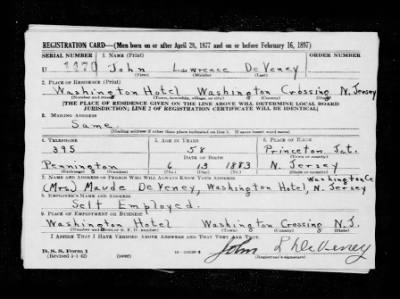 REGISTRATION CARD—(Men born on or after April 28, 1877 and on or before February 16, 1897)
SERIAL NUMBER 1. NAME (Print) ORDER NUMBER
U John Lawrence De Veney
(First) (Middle) (Last)
2. PLACE OF RESIDENCE (Print)
Washington Hotel Washington Crossing N. Jersey
(Number and street) (Town, township, village, or city) (County) (State)
[THE PLACE OF RESIDENCE GIVEN ON THE LINE ABOVE WILL DETERMINE LOCAL BOARD
JURISDICTION; LINE 2 OF REGISTRATION CERTIFICATE WILL BE IDENTICAL]
3. MAILING ADDRESS
Same
[Mailing address if other than place indicated on line 2. If same insert word same]
4. TELEPHONE 5. AGE IN YEARS 6. PLACE OF BIRTH
395 58 Princeton Jct.
DATE OF BIRTH (Town or county)
Pennington 6 13 1883 N. Jersey
(Exchange) (Number) (Mo.) (Day) (Yr.) (State or country)
7. NAME AND ADDRESS OF PERSON WHO WILL ALWAYS KNOW YOUR ADDRESS Washington Cr.
(Mrs) Maude De Veney, Washington Hotel, N. Jersey
8. EMPLOYER'S NAME AND ADDRESS
Self Employed.
9. PLACE OF EMPLOYMENT OR BUSINESS
Washington Hotel Washington Crossing N.J.
(Number and street or R. F. D. number) (Town) (County) (State)
I AFFIRM THAT I HAVE VERIFIED ABOVE ANSWERS AND THAT THEY ARE TRUE.
D. S. S. Form 1
(Revised 4-1-42) (over)
John L DeVeney
(Registrant's signature)